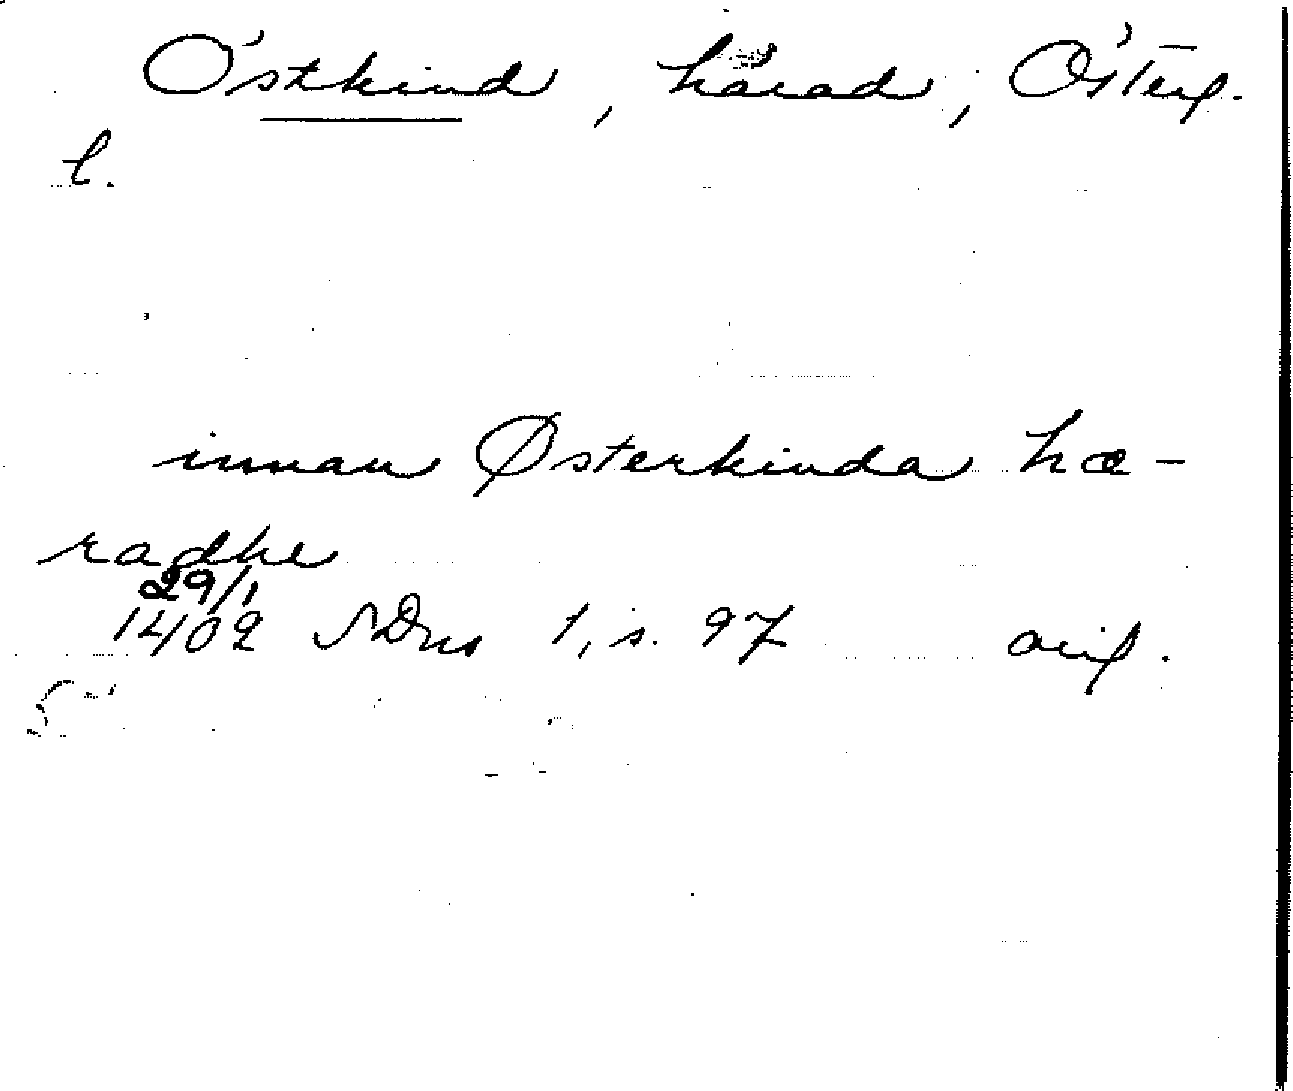 Östkind, härad, Österg.
l.
innan Østerkinda hæ-
radhe
29/1
1402 SDns 1, s. 97 orig.